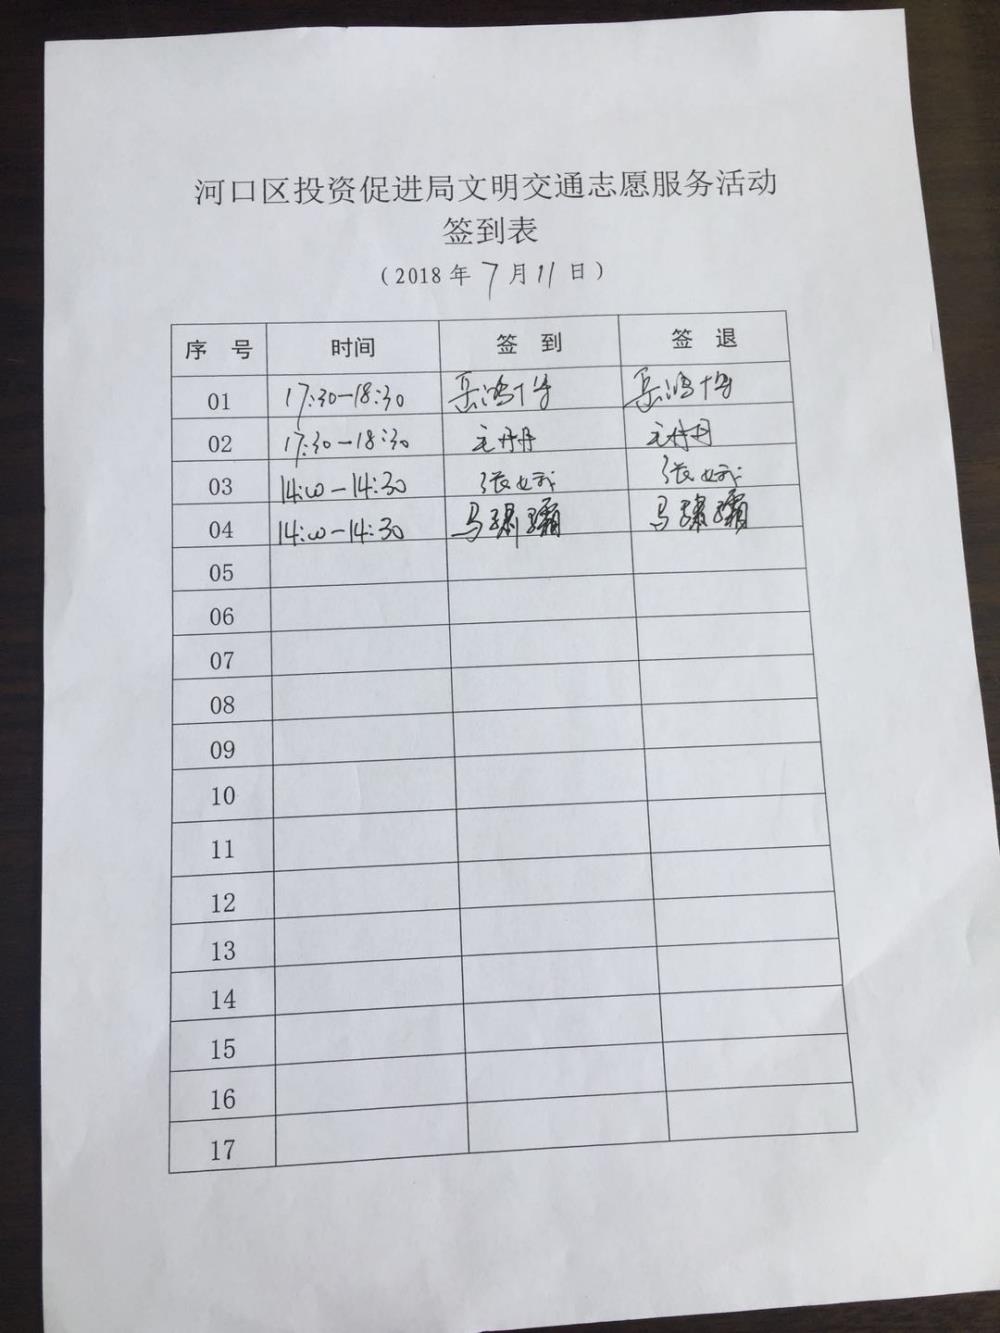 河口区投资促进局文明交通志愿服务活动
签到表
（2018 年 7 月 11 日）
序 号 时间 签 到 签 退
01 17:30-18:30 岳鸿博 岳鸿博
02 17:30-18:30 丹丹 丹丹
03 14:00-14:30 张 张
04 14:00-14:30 马骕骦 马骕骦
05
06
07
08
09
10
11
12
13
14
15
16
17